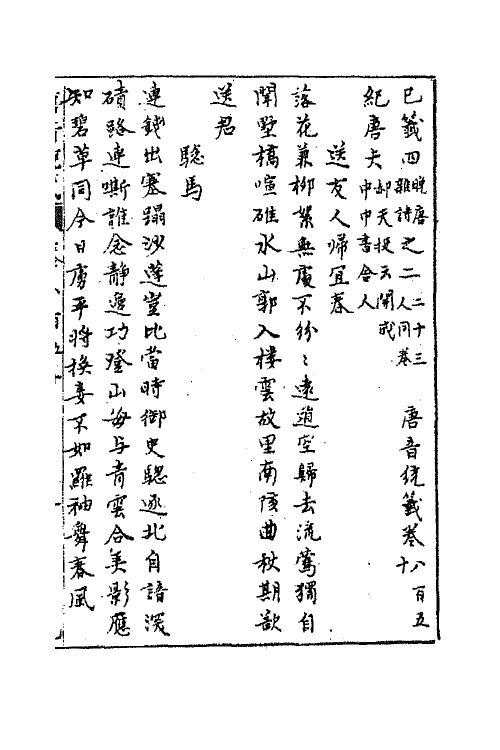 已籤四晚唐雜詩之二二十三人同卷 唐音统籤卷八百五十
紀唐夫却天授云開成中中書舍人
送友人歸宜春
落花兼柳絮無處不紛〻遠道空歸去流鶯獨自
聞墅橋喧碓水山郭入樓雲故里南陔曲秋期欲
送君
驄馬
連錢出塞蹋沙蓬豈比當時御史驄逐北自諳深
磧路連嘶誰念靜邊功登山每与青雲合弄影應
知碧草同今日虜平將換妾不如羅袖舞春風